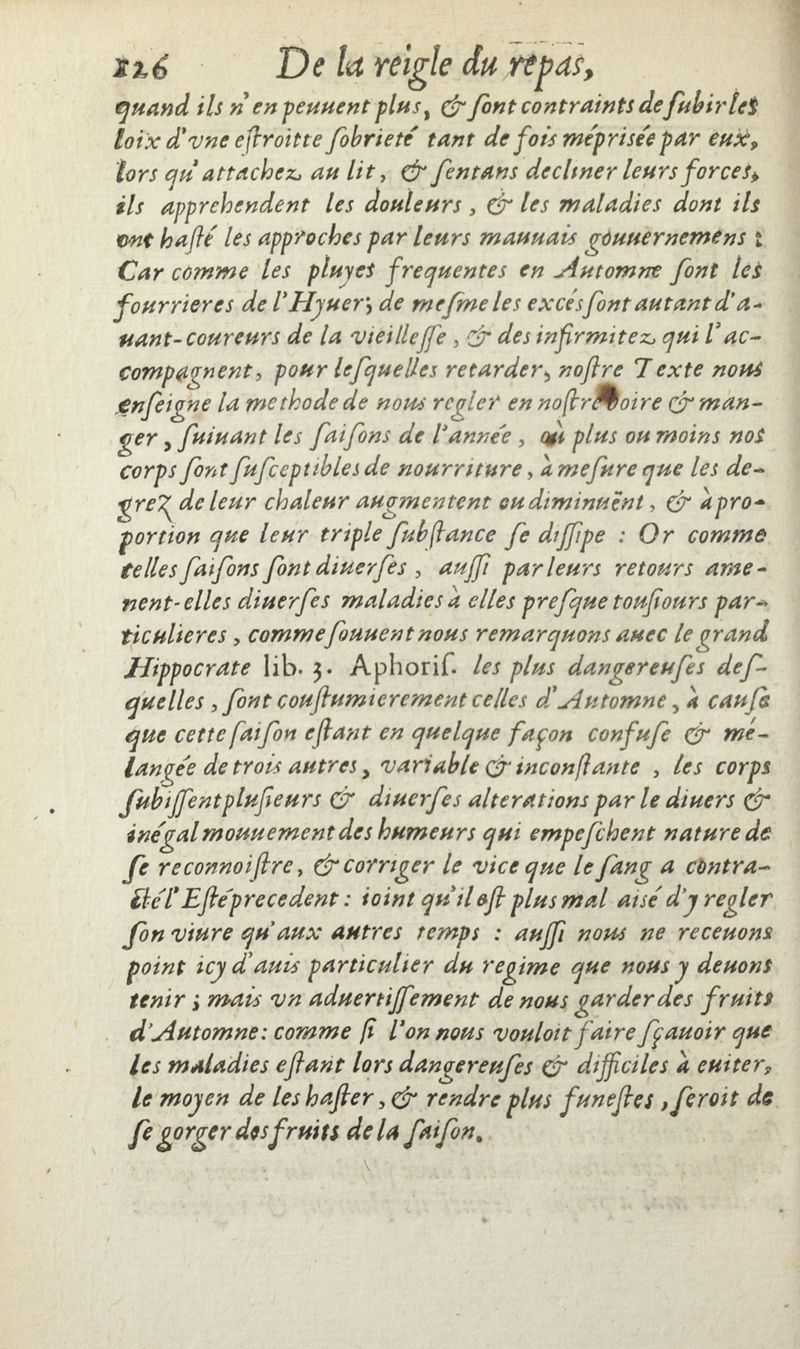 126 De la reigle du repas,
quand ils n'en peuuent plus, & ſont contraints de ſubir les
loix d'vne eſtroitte ſobrieté tant de fois méprisée par eux,
lors qu'attachez au lit, & ſentans decliner leurs forces,
ils apprehendent les douleurs, & les maladies dont ils
ont haſté les approches par leurs mauuais gouuernemens :
Car comme les pluyes frequentes en Automne ſont les
fourrieres de l'Hyuer; de meſme les excés ſont autant d'a-
uant-coureurs de la vieilleſſe, & des infirmitez qui l'ac-
compagnent, pour leſquelles retarder, noſtre Texte nous
enſeigne la methode de nous regler en noſtre boire & man-
ger, ſuiuant les ſaiſons de l'année, où plus ou moins nos
corps ſont ſuſceptibles de nourriture, à meſure que les de-
grez de leur chaleur augmentent ou diminuënt, & à pro-
portion que leur triple ſubſtance ſe diſſipe : Or comme
telles ſaiſons ſont diuerſes, auſſi par leurs retours ame-
nent-elles diuerſes maladies à elles preſque touſiours par-
ticulieres, comme ſouuent nous remarquons auec le grand
Hippocrate lib. 3. Aphoriſ. les plus dangereuſes deſ-
quelles, ſont couſtumierement celles d'Automne, à cauſe
que cette ſaiſon eſtant en quelque façon confuſe & mé-
langée de trois autres, variable & inconſtante, les corps
ſubiſſent pluſieurs & diuerſes alterations par le diuers &
inégal mouuement des humeurs qui empeſchent nature de
ſe reconnoiſtre, & corriger le vice que le ſang a contra-
cté l'Eſté precedent : ioint qu'il eſt plus mal aisé d'y regler
ſon viure qu'aux autres temps : auſſi nous ne receuons
point icy d'auis particulier du regime que nous y deuons
tenir ; mais vn aduertiſſement de nous garder des fruits
d'Automne: comme ſi l'on nous vouloit faire ſçauoir que
les maladies eſtant lors dangereuſes & difficiles à euiter,
le moyen de les haſter, & rendre plus funeſtes, ſeroit de
ſe gorger des fruits de la ſaiſon.